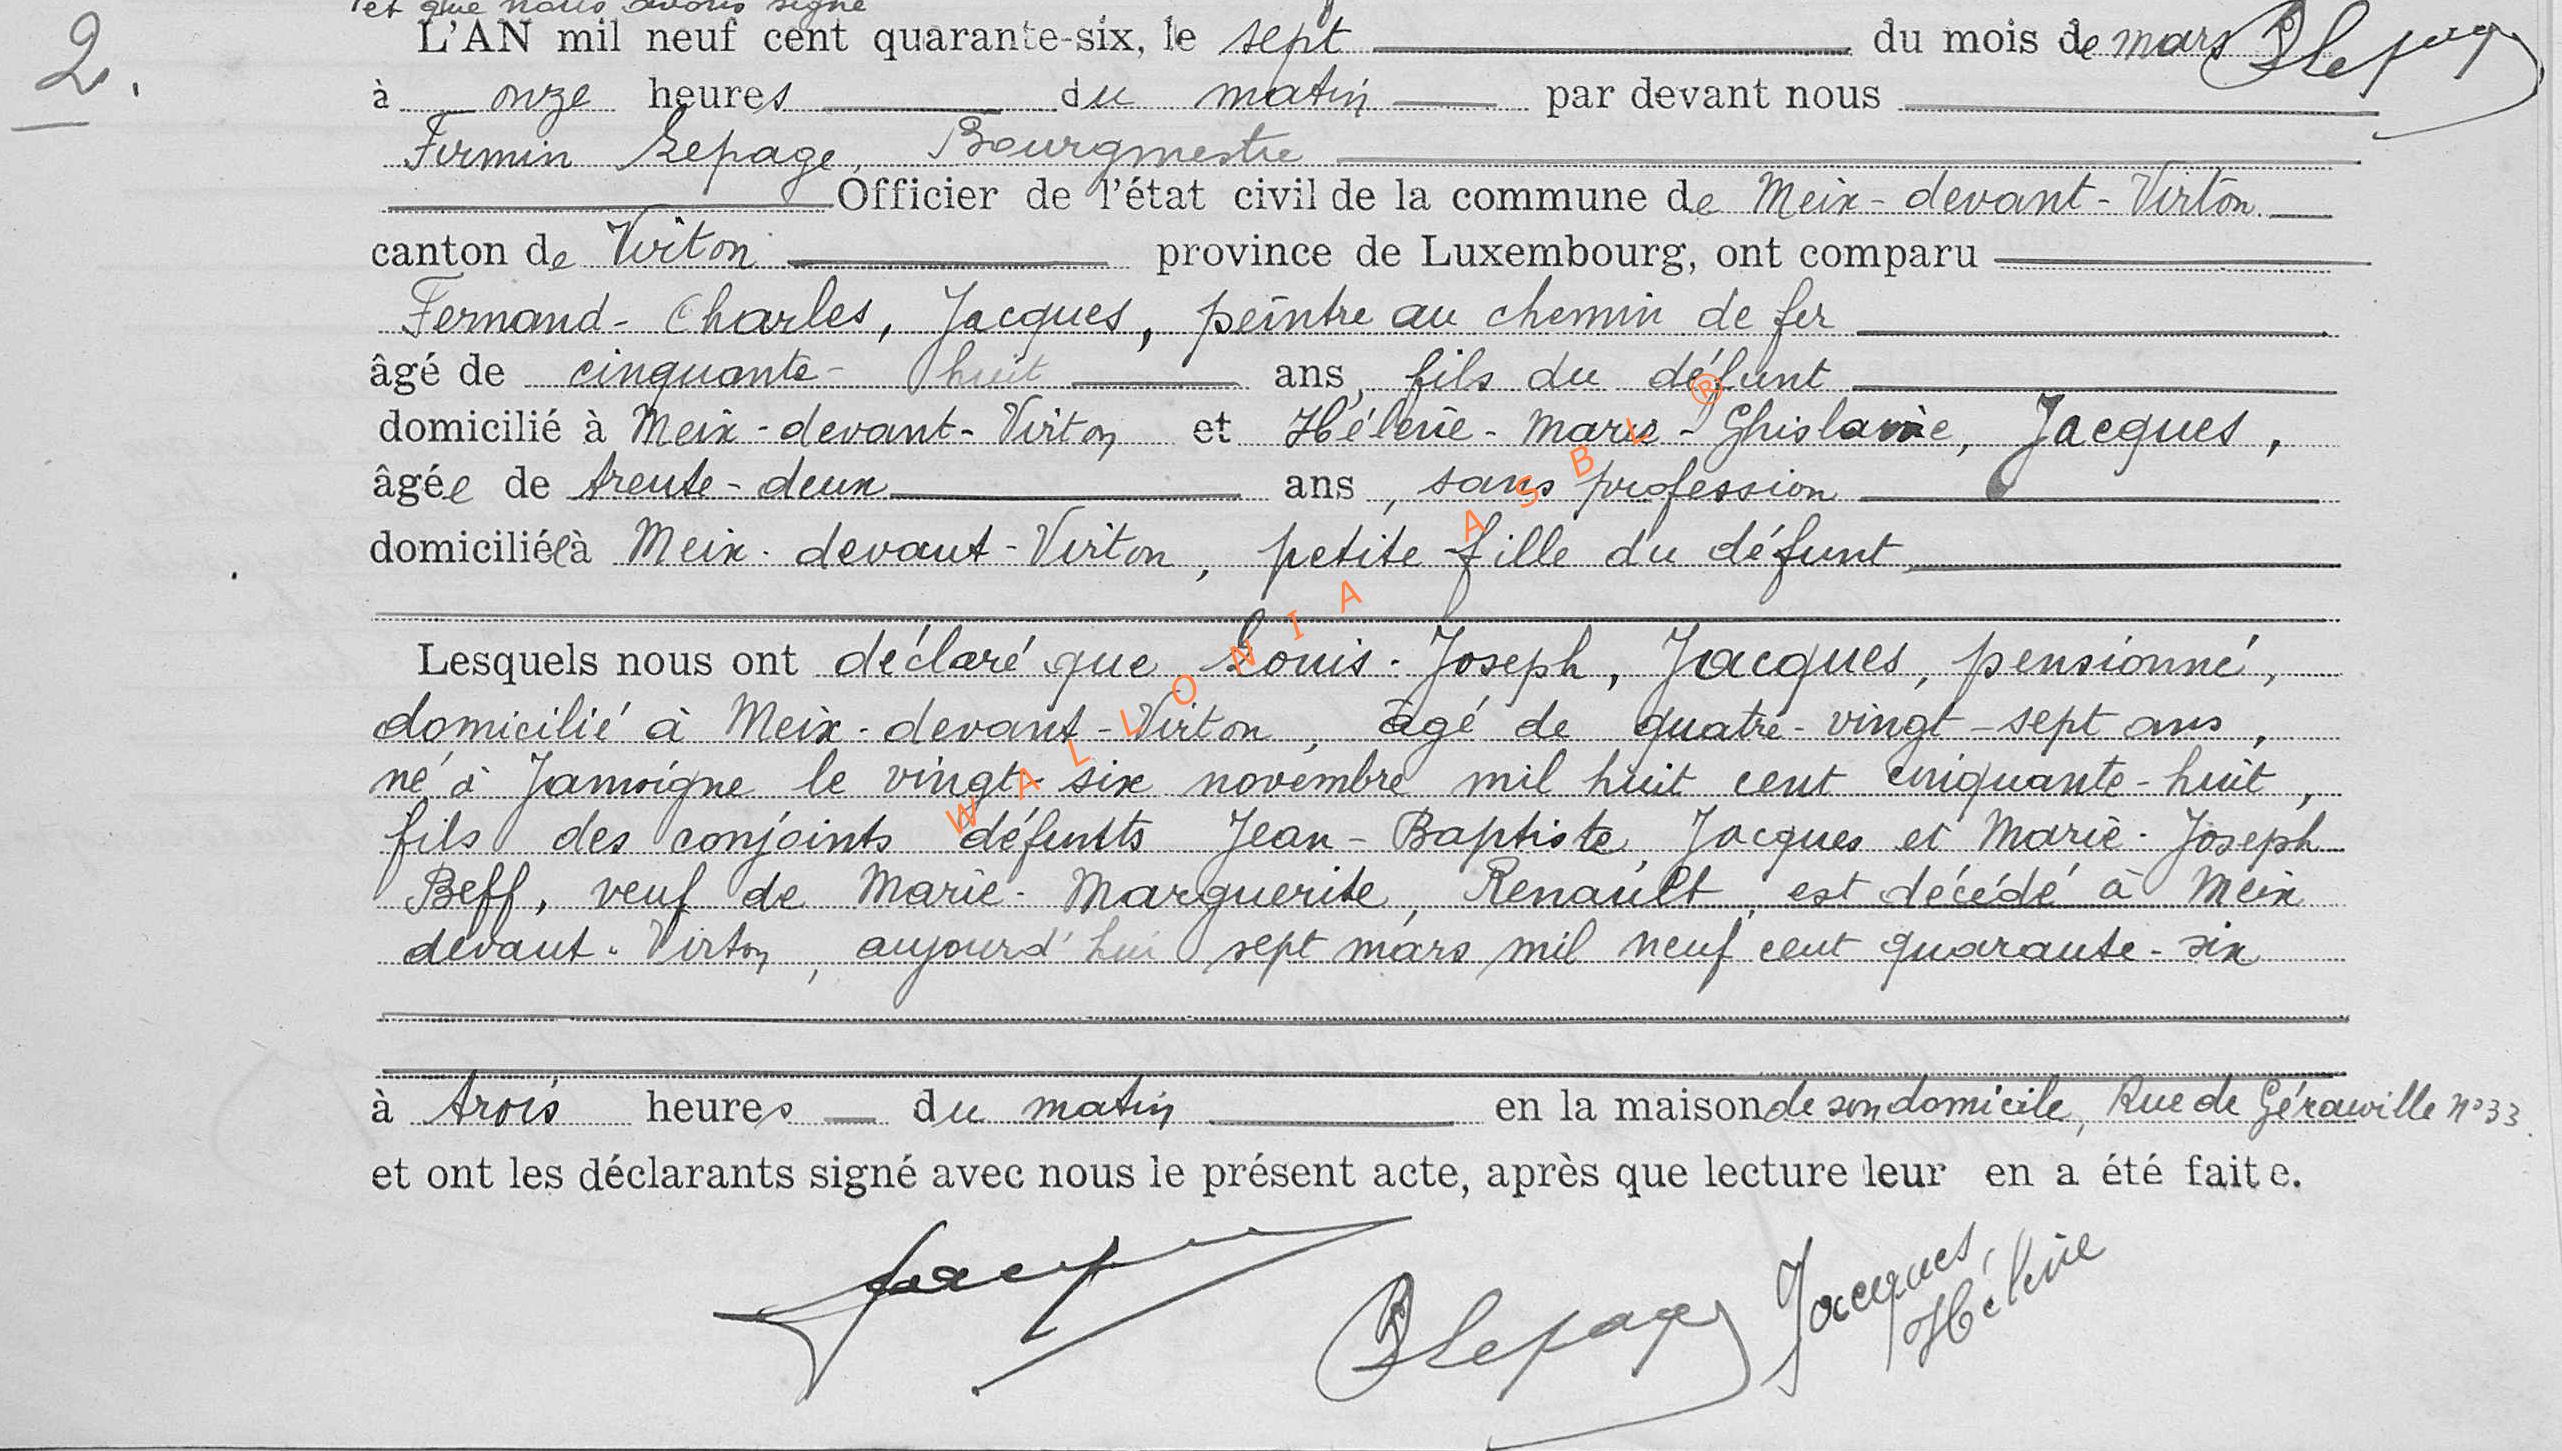 et que nous avons signé
2.
L'AN mil neuf cent quarante-six, le sept du mois de mars Lepage
à onze heures du matin par devant nous
Firmin Lepage, Bourgmestre
Officier de l'état civil de la commune de Meix-devant-Virton
canton de Virton province de Luxembourg, ont comparu
Fernand-Charles, Jacques, peintre au chemin de fer
âgé de cinquante-huit ans, fils du défunt
domicilié à Meix-devant-Virton et Hélène-Marie-Ghislaine, Jacques,
âgée de trente-deux ans, sans profession
domiciliée à Meix-devant-Virton, petite fille du défunt
Lesquels nous ont déclaré que Louis-Joseph, Jacques, pensionné,
domicilié à Meix-devant-Virton, âgé de quatre-vingt-sept ans,
né à Jamoigne le vingt-six novembre mil huit cent cinquante-huit,
fils des conjoints défunts Jean-Baptiste, Jacques et Marie-Joseph
Beff, veuf de Marie-Marguerite, Renault, est décédé à Meix
devant-Virton, aujourd'hui sept mars mil neuf cent quarante-six
à trois heures du matin en la maison de son domicile, Rue de Gérouville n°33.
et ont les déclarants signé avec nous le présent acte, après que lecture leur en a été faite.
Jacques
Lepage
Jacques, Hélène
WALLONIA ASBL ®